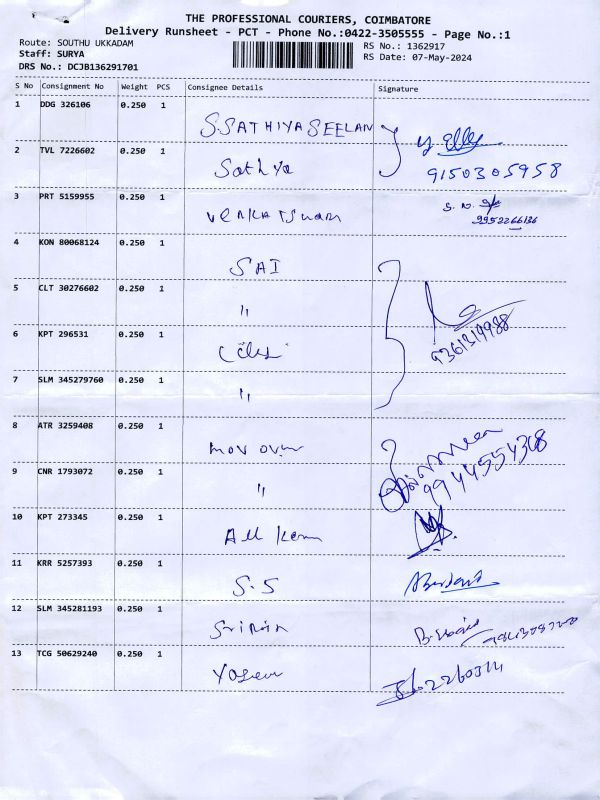 THE PROFESSIONAL COURIERS, COIMBATORE
Delivery Runsheet - PCT - Phone No.:0422-3505555 - Page No.:1
Route: SOUTHU UKKADAM
RS No.: 1362917
Staff: SURYA
RS Date: 07-May-2024
DRS No.: DCJB136291701
S No Consignment No Weight PCS Consignee Details Signature
1 DDG 326106 0.250 1 S.SATHIYASEELAN
2 TVL 7226602 0.250 1 Sathya 9150305958
3 PRT 5159955 0.250 1
4 KON 80068124 0.250 1 SAI
5 CLT 30276602 0.250 1 "
6 KPT 296531 0.250 1 9361319988
7 SLM 345279760 0.250 1 "
8 ATR 3259408 0.250 1
9 CNR 1793072 0.250 1 "
10 KPT 273345 0.250 1
11 KRR 5257393 0.250 1 S.S
12 SLM 345281193 0.250 1
13 TCG 50629240 0.250 1